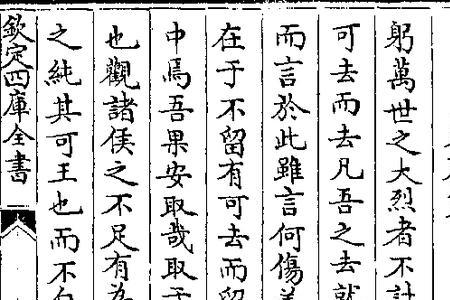 躬萬世之大烈者不計
可去而去凡吾之去就
而言於此雖言何傷美
在于不留有可去而留
中焉吾果安取哉取于
也觀諸侯之不足有為
之純其可王也而不
欽定四庫全書